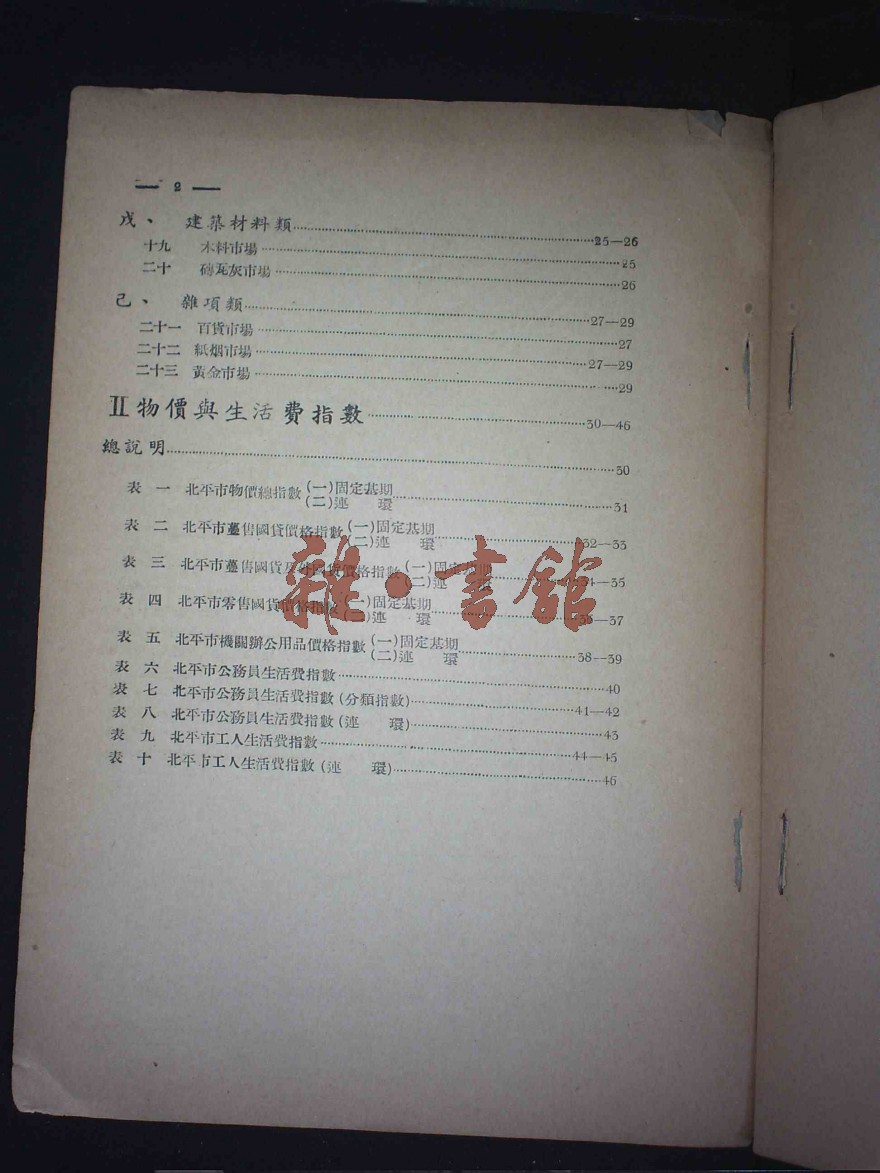 — 2 —
戊、 建築材料類……25—26
十九 木料市場……25
二十 磚瓦灰市場……26
己、 雜項類……27—29
二十一 百貨市場……27
二十二 紙烟市場……27—29
二十三 黃金市場……29
II 物價與生活費指數……30—46
總說明……30
表 一 北平市物價總指數 (一)固定基期
(二)連 環……31
表 二 北平市躉售國貨價格指數 (一)固定基期
(二)連 環……32—33
表 三 北平市躉售國貨及外國貨價格指數 (一)固定基期
(二)連 環……34—35
表 四 北平市零售國貨價格指數 (一)固定基期
(二)連 環……36—37
表 五 北平市機關辦公用品價格指數 (一)固定基期
(二)連 環……38—39
表 六 北平市公務員生活費指數……40
表 七 北平市公務員生活費指數(分類指數)……41—42
表 八 北平市公務員生活費指數(連 環)……43
表 九 北平市工人生活費指數……44—45
表 十 北平市工人生活費指數(連 環)……46
雜·書館